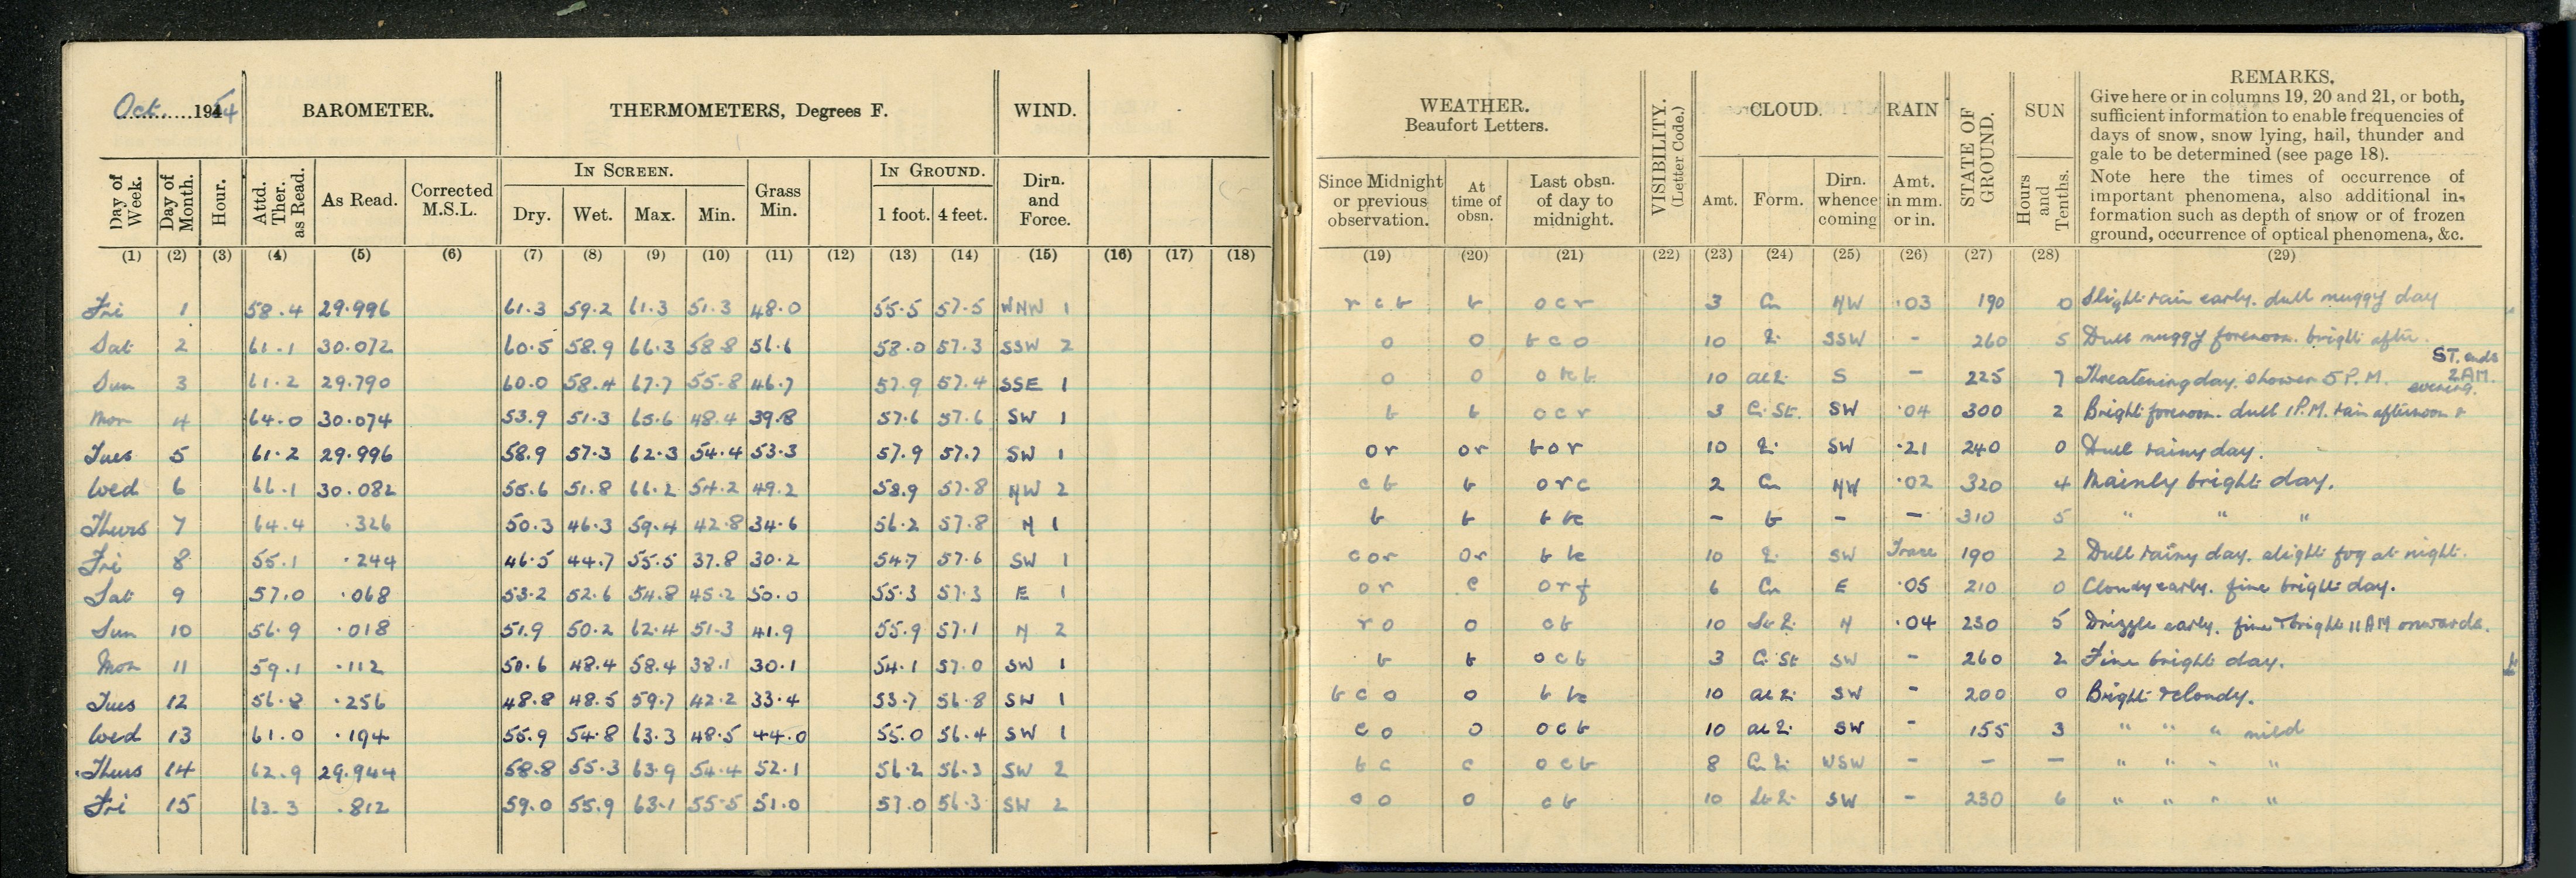 Oct 1954 BAROMETER. THERMOMETERS, Degrees F. WIND.
IN SCREEN. IN GROUND.
Day of Week. Day of Month. Hour. Attd. Ther. as Read. As Read. Corrected M.S.L. Dry. Wet. Max. Min. Grass Min. 1 foot. 4 feet. Dirn. and Force.
(1) (2) (3) (4) (5) (6) (7) (8) (9) (10) (11) (12) (13) (14) (15) (16) (17) (18)
Fri 1 58.4 29.996 61.3 59.2 61.3 51.3 48.0 55.5 57.5 WNW 1
Sat 2 61.1 30.072 60.5 58.9 66.3 58.8 56.6 58.0 57.3 SSW 2
Sun 3 61.2 29.790 60.0 58.4 67.7 55.8 46.7 57.9 57.4 SSE 1
Mon 4 64.0 30.074 53.9 51.3 65.6 48.4 39.8 57.6 57.6 SW 1
Tues 5 61.2 29.996 58.9 57.3 62.3 54.4 53.3 57.9 57.7 SW 1
Wed 6 66.1 30.082 55.6 51.8 66.2 54.2 49.2 58.9 57.8 NW 2
Thurs 7 64.4 .326 50.3 46.3 59.4 42.8 34.6 56.2 57.8 N 1
Fri 8 55.1 .244 46.5 44.7 55.5 37.8 30.2 54.7 57.6 SW 1
Sat 9 57.0 .068 53.2 52.6 54.8 45.2 50.0 55.3 57.3 E 1
Sun 10 56.9 .018 51.9 50.2 62.4 51.3 41.9 55.9 57.1 N 2
Mon 11 59.1 .112 50.6 48.4 58.4 38.1 30.1 54.1 57.0 SW 1
Tues 12 56.8 .256 48.8 48.5 59.7 42.2 33.4 53.7 56.8 SW 1
Wed 13 61.0 .194 55.9 54.8 63.3 48.5 44.0 55.0 56.4 SW 1
Thurs 14 62.9 29.944 58.8 55.3 63.9 54.4 52.1 56.2 56.3 SW 2
Fri 15 63.3 .812 59.0 55.9 63.1 55.5 51.0 57.0 56.3 SW 2
WEATHER. Beaufort Letters. VISIBILITY. (Letter Code.) CLOUD. RAIN STATE OF GROUND. SUN REMARKS.
Give here or in columns 19, 20 and 21, or both,
sufficient information to enable frequencies of
days of snow, snow lying, hail, thunder and
gale to be determined (see page 18).
Note here the times of occurrence of
important phenomena, also additional in-
formation such as depth of snow or of frozen
ground, occurrence of optical phenomena, &c.
Since Midnight or previous observation. At time of obsn. Last obsn. of day to midnight. Amt. Form. Dirn. whence coming Amt. in mm. or in. Hours and Tenths.
(19) (20) (21) (22) (23) (24) (25) (26) (27) (28) (29)
r c b b o c r 3 Cu NW .03 190 0 Slight rain early. dull muggy day
o o b c o 10 SSW - 260 5 Dull muggy forenoon. bright after.
o o 10 S - 225 7 Threatening day. shower 5 P.M. ST. ends 2 AM.
b b o c r 3 Ci St. SW .04 300 2 Bright forenoon. dull 1 P.M. rain afternoon & evening.
o r o r b o r 10 SW .21 240 0 Dull rainy day.
c b b o r c 2 Cu NW .02 320 4 Mainly bright day.
b b b - b - - 310 5 " " "
c o r o r b 10 SW Trace 190 2 Dull rainy day. slight fog at night.
o r c o r f 6 Cu E .05 210 0 Cloudy early. fine bright day.
r o o c b 10 N .04 230 5 Drizzle early. fine & bright 11 AM onwards.
b b o c b 3 Ci St SW - 260 2 Fine bright day.
b c o o b 10 SW - 200 0 Bright & cloudy.
c o o o c b 10 SW - 155 3 " " " mild
b c c o c b 8 WSW - - - " " " "
o o c b 10 SW - 230 6 " " " "